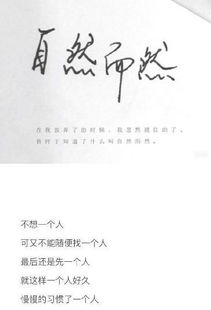 自然而然
在我放弃了的时候，我忽然就信的了。
我终于知道了什么叫自然而然。
不想一个人
可又不能随便找一个人
最后还是先一个人
就这样一个人好久
慢慢的习惯了一个人